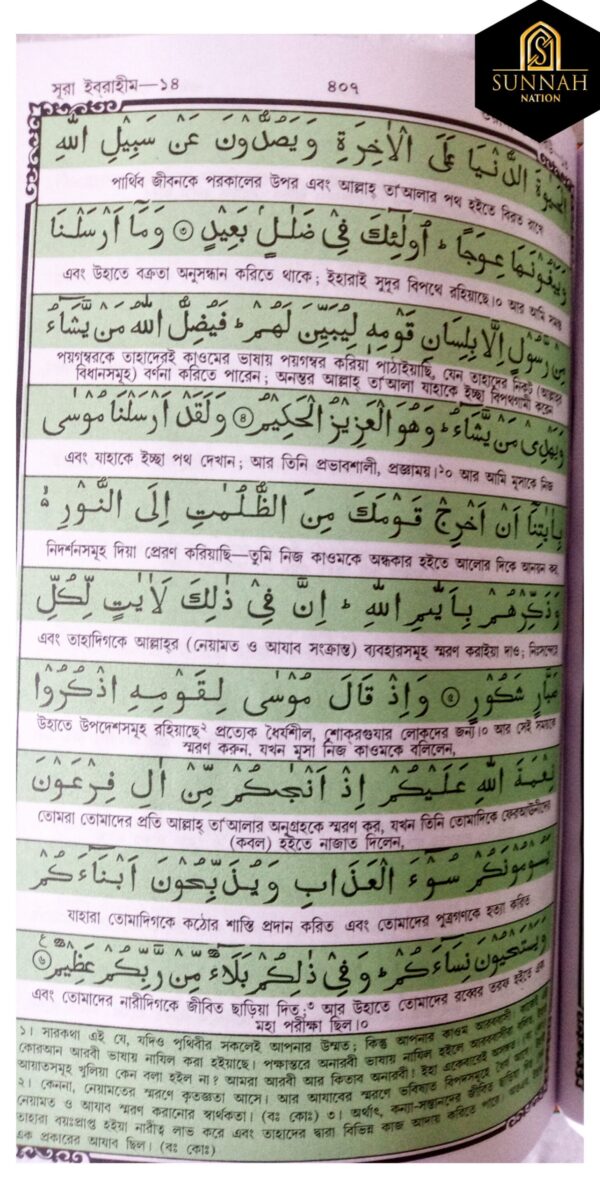 SUNNAH
NATION
সূরা ইবরাহীম—১৪
৪০৭
الْحَيٰوةَ الدُّنْيَا عَلَى الْاٰخِرَةِ وَيَصُدُّوْنَ عَنْ سَبِيْلِ اللّٰهِ
পার্থিব জীবনকে পরকালের উপর এবং আল্লাহ্ তা'আলার পথ হইতে বিরত রাখে
وَيَبْغُوْنَهَا عِوَجًا ؕ اُولٰٓئِكَ فِيْ ضَلٰلٍۭ بَعِيْدٍ ۝٣ وَمَآ اَرْسَلْنَا
এবং উহাতে বক্রতা অনুসন্ধান করিতে থাকে ; ইহারাই সুদূর বিপথে রহিয়াছে।০ আর আমি সমস্ত
مِنْ رَّسُوْلٍ اِلَّا بِلِسَانِ قَوْمِهٖ لِيُبَيِّنَ لَهُمْ ؕ فَيُضِلُّ اللّٰهُ مَنْ يَّشَآءُ
পয়গম্বরকে তাহাদেরই কাওমের ভাষায় পয়গম্বর করিয়া পাঠাইয়াছি, যেন তাহাদের নিকট (আল্লাহর
বিধানসমূহ) বর্ণনা করিতে পারেন ; অনন্তর আল্লাহ্ তা'আলা যাহাকে ইচ্ছা বিপথগামী করেন
وَيَهْدِيْ مَنْ يَّشَآءُ ؕ وَهُوَ الْعَزِيْزُ الْحَكِيْمُ ۝٤ وَلَقَدْ اَرْسَلْنَا مُوْسٰى
এবং যাহাকে ইচ্ছা পথ দেখান ; আর তিনি প্রভাবশালী, প্রজ্ঞাময়।১০ আর আমি মূসাকে নিজ
بِاٰيٰتِنَآ اَنْ اَخْرِجْ قَوْمَكَ مِنَ الظُّلُمٰتِ اِلَى النُّوْرِ ۙ
নিদর্শনসমূহ দিয়া প্রেরণ করিয়াছি—তুমি নিজ কাওমকে অন্ধকার হইতে আলোর দিকে আনয়ন কর,
وَذَكِّرْهُمْ بِاَيّٰىمِ اللّٰهِ ؕ اِنَّ فِيْ ذٰلِكَ لَاٰيٰتٍ لِّكُلِّ
এবং তাহাদিগকে আল্লাহ্‌র (নেয়ামত ও আযাব সংক্রান্ত) ব্যবহারসমূহ স্মরণ করাইয়া দাও; নিঃসন্দেহে
صَبَّارٍ شَكُوْرٍ ۝٥ وَاِذْ قَالَ مُوْسٰى لِقَوْمِهِ اذْكُرُوْا
উহাতে উপদেশসমূহ রহিয়াছে২ প্রত্যেক ধৈর্যশীল, শোকরগুযার লোকদের জন্য।০ আর সেই সময়কে
স্মরণ করুন, যখন মূসা নিজ কাওমকে বলিলেন,
نِعْمَةَ اللّٰهِ عَلَيْكُمْ اِذْ اَنْجٰىكُمْ مِّنْ اٰلِ فِرْعَوْنَ
তোমরা তোমাদের প্রতি আল্লাহ্ তা'আলার অনুগ্রহকে স্মরণ কর, যখন তিনি তোমাদিকে ফেরআউনীদের
(কবল) হইতে নাজাত দিলেন,
يَسُوْمُوْنَكُمْ سُوْٓءَ الْعَذَابِ وَيُذَبِّحُوْنَ اَبْنَآءَكُمْ
যাহারা তোমাদিগকে কঠোর শাস্তি প্রদান করিত এবং তোমাদের পুত্রগণকে হত্যা করিত
وَيَسْتَحْيُوْنَ نِسَآءَكُمْ ؕ وَفِيْ ذٰلِكُمْ بَلَآءٌ مِّنْ رَّبِّكُمْ عَظِيْمٌ ۝٦
এবং তোমাদের নারীদিগকে জীবিত ছাড়িয়া দিত;৩ আর উহাতে তোমাদের রব্বের তরফ হইতে এক
মহা পরীক্ষা ছিল।০
১। সারকথা এই যে, যদিও পৃথিবীর সকলেই আপনার উম্মত; কিন্তু আপনার কাওম আরববাসী।
কোরআন আরবী ভাষায় নাযিল করা হইয়াছে। পক্ষান্তরে অনারবী ভাষায় নাযিল হইলে আরববাসীরা বলিত
আয়াতসমূহ খুলিয়া কেন বলা হইল না? আমরা আরবী আর কিতাব অনারবী। ইহা একেবারেই
২। কেননা, নেয়ামতের স্মরণে কৃতজ্ঞতা আসে। আর আযাবের স্মরণে ভবিষ্যত বিপদসমূহে ধৈর্য আসে।
নেয়ামত ও আযাব স্মরণ করানোর স্বার্থকতা। (বঃ কোঃ) ৩। অর্থাৎ, কন্যা-সন্তানদের জীবিত ছাড়িয়া দিত,
তাহারা বয়ঃপ্রাপ্ত হইয়া নারীত্ব লাভ করে এবং তাহাদের দ্বারা বিভিন্ন কাজ আদায় করিতে পারে।
এক প্রকারের আযাব ছিল। (বঃ কোঃ)